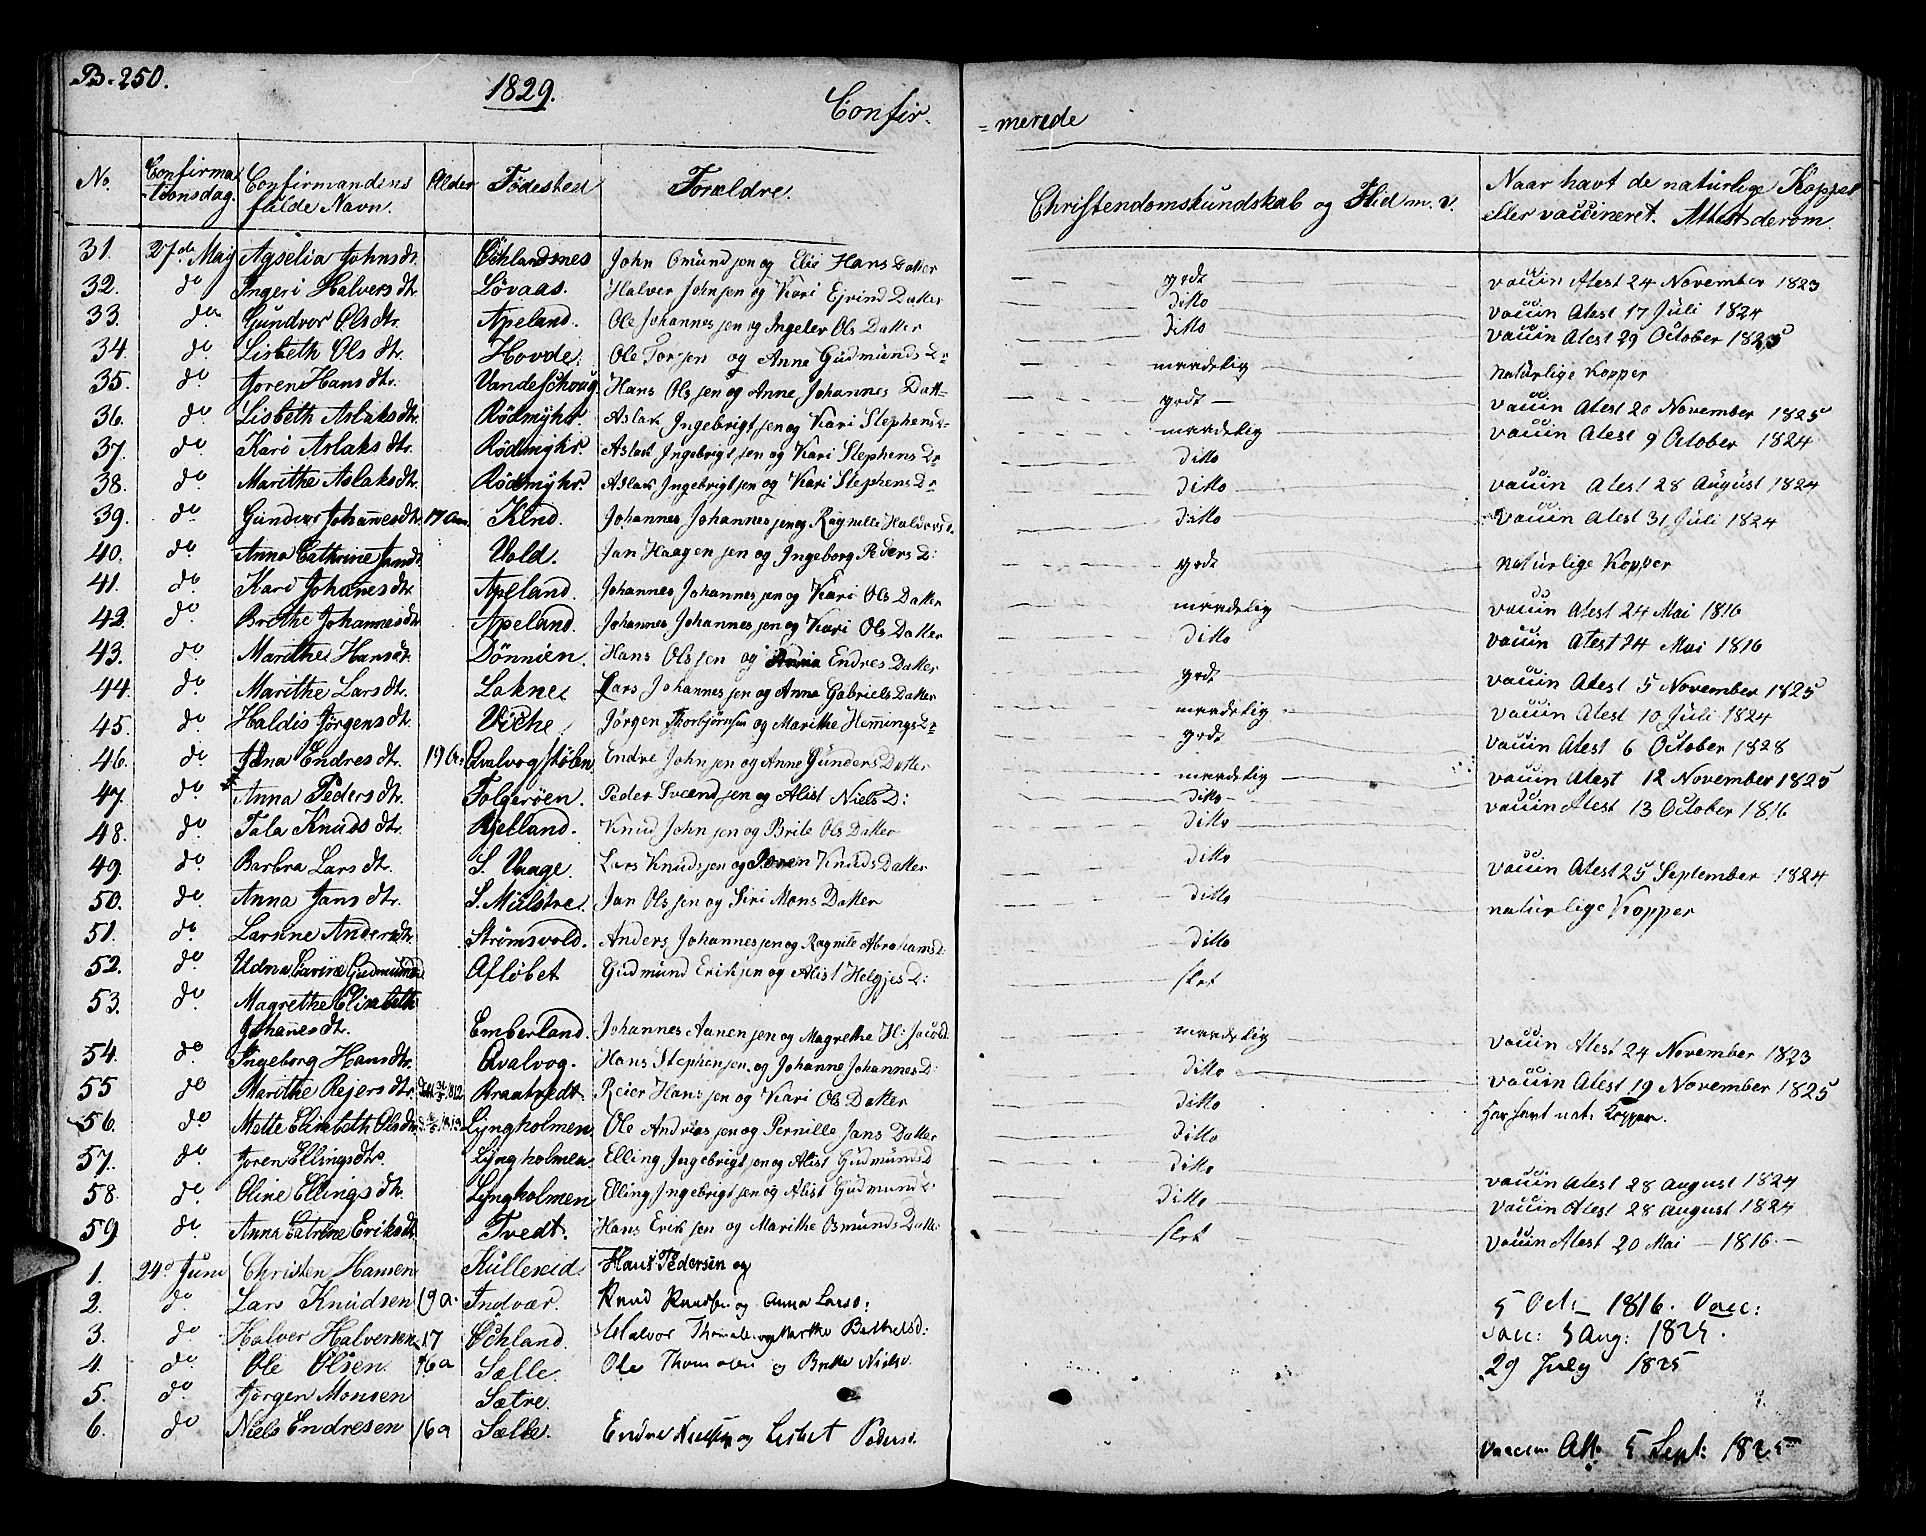 B. 250.
1829.
Confir-
=merede
No.
Confirma
-tionsdag.
Confirmandens
fulde Navn.
Alder
Fødested
Forældre.
Christendomskundskab og Flid m. v.
Naar havt de naturlige Kopper
eller vaccineret. Attest derom.
31. 27de Maij Agselia Johnsdtr. Öchlandsnes John Omundsen og Eli Hans Datter godt vaccin Atest 24 November 1823
32. do Ingeri Halversdtr. Lövaas. Halver Johnsen og Kari Ejvind Datter ditto vaccin Atest 17 Juli 1824
33. do Gundvor Olsdtr. Apeland. Ole Johannesen og Ingeler Ols Datter ditto vaccin Atest 29 October 1825
34. do Lisbeth Olsdtr. Hovde. Ole Torsen og Anne Gudmunds Dr maadelig Naturlige Kopper
35. do Joren Hansdtr. Vandeschoug Hans Olsen og Anne Johannes Datt godt vaccin Atest 20 November 1825
36. do Lisbeth Aslaksdtr. Rödmyhr. Aslak Ingebrigtsen og Kari Stephens Dr maadelig vaccin Atest 9 October 1824
37. do Kari Aslaksdtr. Rödmyhr. Aslak Ingebrigtsen og Kari Stephens Dr ditto
38. do Marithe Aslaksdtr. Rödmyhr. Aslak Ingebrigtsen og Kari Stephens Dr ditto vaccin Atest 28 August 1824
39. do Gunder Johannesdtr. 17 Aar. Kind. Johannes Johannesen og Ragnille Haldorsd. ditto vaccin Atest 31 Juli 1824
40. do Anna Cathrine Jansdt. Vold. Jan Haagensen og Ingeborg Peders D: godt naturlige Kopper
41. do Kari Johanesdtr. Apeland. Johannes Johannesen og Kari Ols Datter maadelig vaccin Atest 24 Mai 1816
42. do Brethe Johannesdtr. Apeland. Johannes Johannesen og Kari Ols Datter ditto vaccin Atest 24 Mai 1816
43. do Marithe Hansdtr. Dönnien. Hans Olsen og Anna Endres Datter godt vaccin Atest 5 November 1825
44. do Marithe Larsdtr. Laknes Lars Johannesen og Anna Gabriels Datter maadelig vaccin Atest 10 Juli 1824
45. do Haldis Jörgensdtr. Viche Jörgen Thorbjörnsen og Marithe Hemmings Dr godt vaccin Atest 6 October 1828
46. do Edna Endresdtr. 19 a. Qvalvogstölen. Endre Johnsen og Anne Gunders Datter maadelig vaccin Atest 12 November 1825
47. do Anna Pedersdtr. Folgeröen. Peder Svendsen og Alist Niels D: ditto vaccin Atest 13 October 1816
48. do Tala Knudsdtr. Kjelland. Knud Johnsen og Brite Ols Datter ditto
49. do Barbra Larsdtr. S. Vaage. Lars Knudsen og Joren Knuds Datter ditto vaccin Atest 25 September 1824
50. do Anna Jansdtr. S. Mælstre. Jan Olsen og Siri Mons Datter ditto naturlige Kopper
51. do Larsine Andersdtr Strömsvold. Anders Johannesen og Ragnile Abrahamsd. ditto
52. do Udna Carine Gudmundsd Aflöbet Gudmund Eriksen og Alist Helgjes D: slet
53. do Magrethe Elisabeth
Johanesdtr. Emberland. Johannes Aanensen og Magrethe H: Jacobd maadelig vaccin Atest 24 November 1823
54. do Ingeborg Hansdtr. Qvalvog. Hans Stephensen og Johanne Johannes D: ditto vaccin Atest 19 November 1825
55 do Marithe Rejersdtr. 1812 Braatvedt. Reier Hansen og Kari Ols Datter ditto Har havt nat: Kopper.
56. do Mette Elisabeth Olsdtr Lyngholmen. Ole Andreas sen og Pernille Jans Datter ditto
57. do Joren Ellingsdtr. Lyngholmen. Elling Ingebrigtsen og Alist Gudmunds D ditto vaccin Atest 28 August 1824
58. do Oline Ellingsdtr. Lyngholmen Elling Ingebrigtsen og Alist Gudmunds D: ditto vaccin Atest 28 august 1824
59 do Anna Catrine Eriksdtr Tvedt. Hans Eriksen og Marithe Osmunds Datter slet vaccin Atest 20 Mai - 1816.-
1. 24d Juni Christen Hansen Kulleseid. Hans Pedersen og
2. do Lars Knudsen 19 a. Indvær. Knud Knudsen og Anna Larsd: 5 Oct. 1816. Vacc:
3. do Halver Halversen 17 Öchland. Halvor Thomas. og Marthe Bertheld: Vacc: 5 Aug: 1825.
4. do Ole Olsen. 16 a Sælle. Ole Thomasen og Britte Nielsd. 29 July 1825
5. do Jörgen Monsen Sætre.
6. do Niels Endresen 16 a Sælle. Endre Nielsen og Lisbet Pedersd. Vaccin Att. 5 Sept: 1825